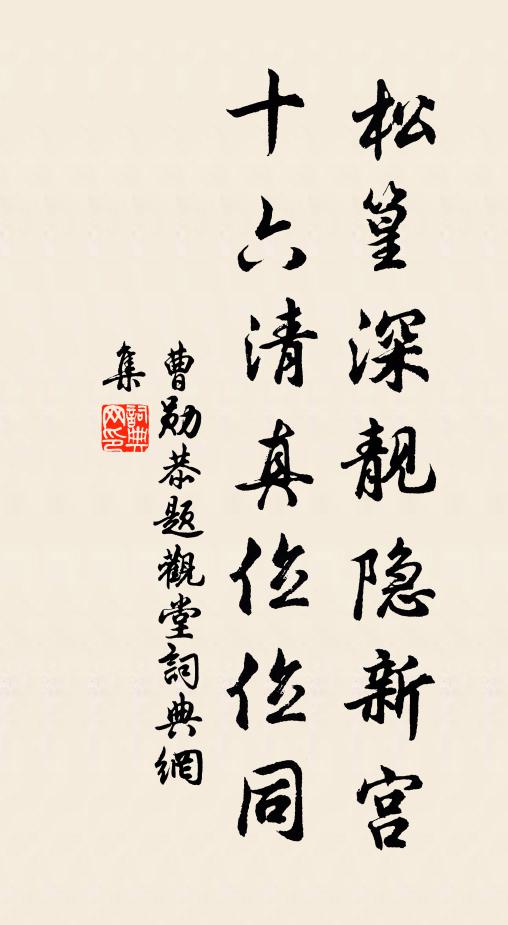 松篁深靚隐新宫
十六清真位位同
曹勋恭题觀堂詞典網
集
詞典
网印